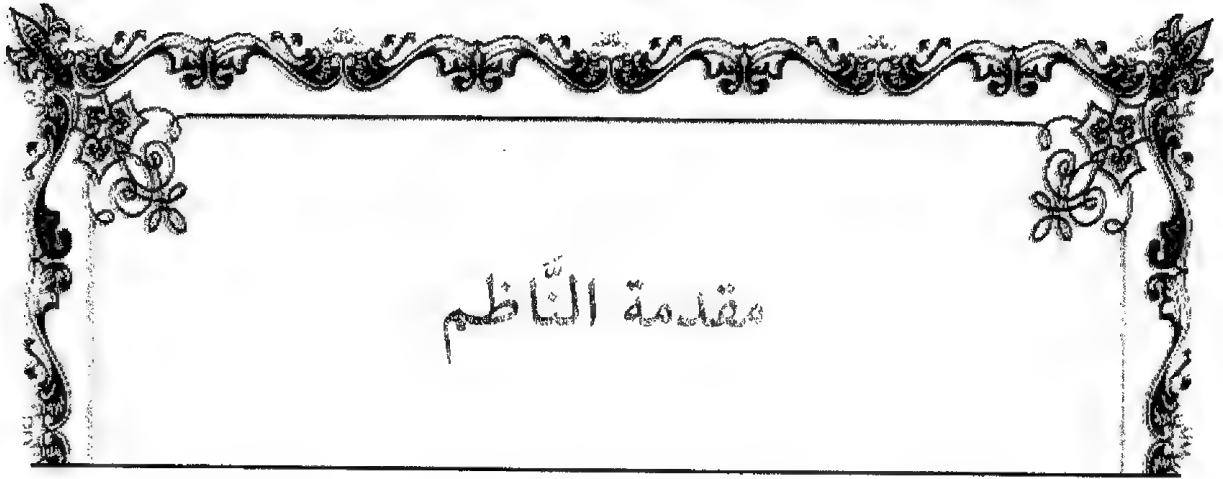 مقدمة النَّاظم